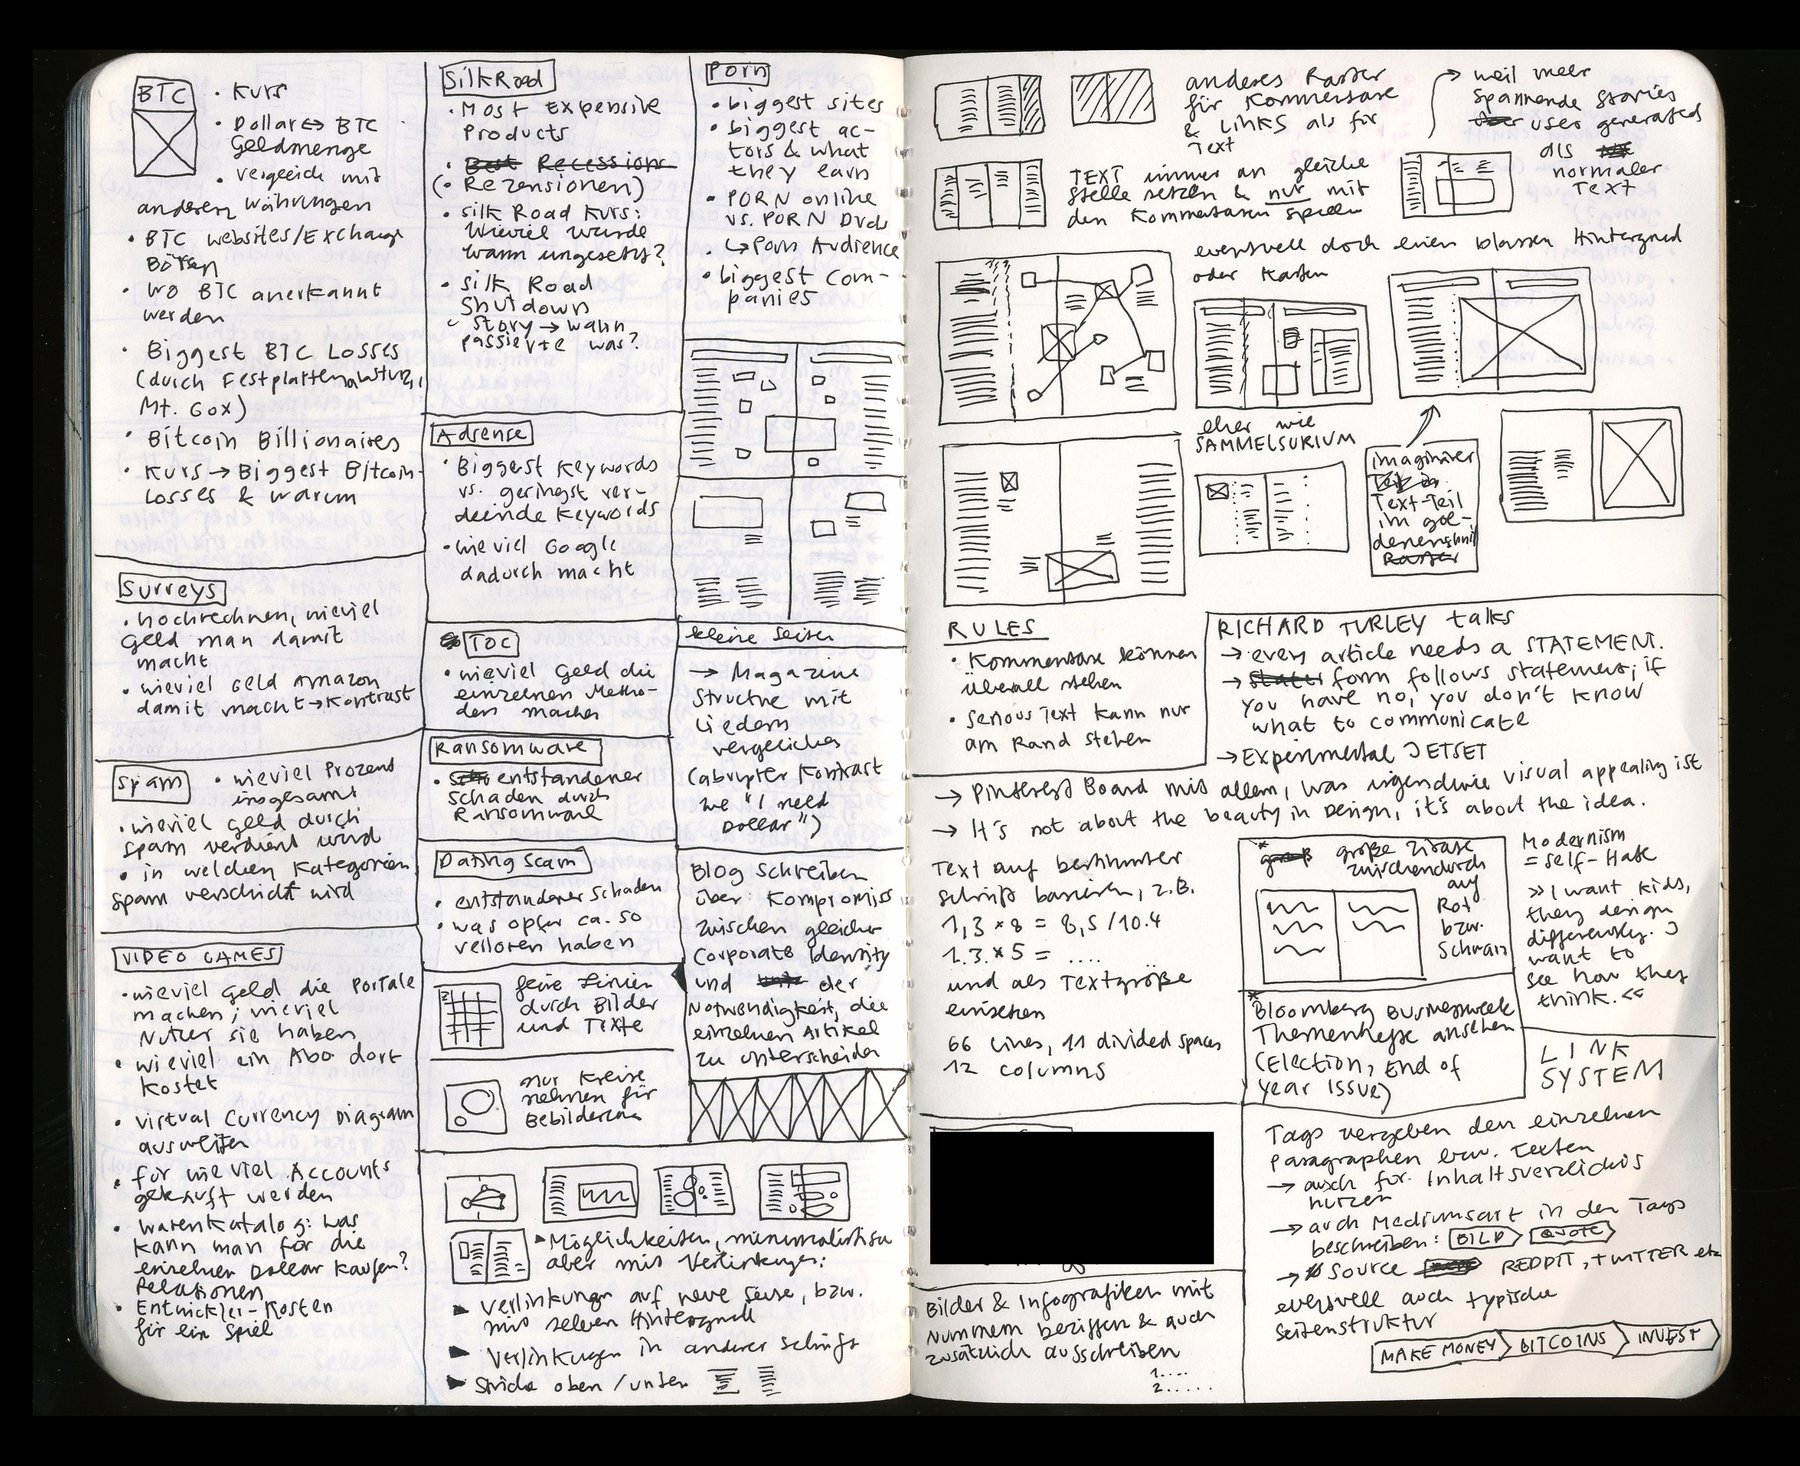 BTC
• Kurs
• Dollar ↔ BTC
Geldmenge
• vergleich mit
anderen Währungen
• BTC websites/Exchange
Börsen
• wo BTC anerkannt
werden
• Biggest BTC Losses
(durch Festplattenabsturz,
Mt. Gox)
• Bitcoin Billionaires
• Kurs → Biggest Bitcoin-
Losses & warum
Surveys
• hochrechnen, wieviel
Geld man damit
macht
• wieviel Geld Amazon
damit macht → Kontrast
Spam
• wieviel Prozent
insgesamt
• wieviel Geld durch
Spam verdient wird
• in welchen Kategorien
Spam verschickt wird
VIDEO GAMES
• wieviel Geld die Portale
machen, wieviel
Nutzer sie haben
• wieviel ein Abo dort
kostet
• virtual Currency Diagram
ausweiten
• für wieviel Accounts
gekauft werden
• Warenkatalog: was
kann man für die
einzelnen Dollar kaufen?
Relationen
• Entwickler-Kosten
für ein Spiel
SilkRoad
• Most Expensive
Products
• Best Recession
(• Rezensionen)
• silk Road Kurs:
Wieviel wurde
wann umgesetzt?
• silk Road
Shutdown
Story → wann
passierte was?
Adsense
• Biggest Keywords
vs. geringst ver-
dienende Keywords
• wieviel Google
dadurch macht
TOC
• wieviel Geld die
einzelnen Metho-
den machen
Ransomware
• entstandener
Schaden durch
Ransomware
Dating Scam
• entstandener Schaden
• was Opfer ca. so
verloren haben
feine Linien
durch Bilder
und Texte
nur Kreise
nehmen für
Bebilderung
Möglichkeiten, minimalistisch
aber mit Verlinkungen:
Verlinkungen auf neue Seite, bzw.
mit selben Hintergrund
Verlinkungen in anderer Schrift
Striche oben/unten
Porn
• biggest sites
• biggest ac-
tors & what
they earn
• PORN online
vs. PORN DVDs
↳ Porn Audience
• biggest Com-
panies
kleine Seiten
→ Magazine
Structure mit
Liedern
vergleichen
(abrupter Kontrast
wie "I need
Dollar")
Blog schreiben
über Kompromiss
zwischen gleicher
Corporate Identity
und der
Notwendigkeit, die
einzelnen Artikel
zu unterscheiden
anderes Raster
für Kommentare
& LINKS als für
Text
→ weil mehr
spannende stories
user generated
als
normaler
Text
TEXT immer an gleiche
Stelle setzen & nur mit
den Kommentaren spielen
eventuell doch einen blassen Hintergrund
oder Kasten
eher wie
SAMMELSURIUM
imaginärer
Text-Teil
im gol-
denenschnitt
Raster
RULES
• Kommentare können
überall stehen
• Serious Text kann nur
am Rand stehen
RICHARD TURLEY talks
→ every article needs a STATEMENT.
→ form follows statement, if
you have no, you don't know
what to communicate
→ Experimental JETSET
→ Pinterest Board mit allem, was irgendwie visual appealing ist
→ It's not about the beauty in Design, it's about the idea.
Text auf bestimmter
Schrift basieren, z.B.
1,3 * 8 = 8,5 / 10.4
1.3 * 5 = ....
und als Textgröße
einsetzen
66 Lines, 11 divided spaces
12 columns
* große Zitate
zwischendurch
auf
Rot
bzw.
Schwarz
* Bloomberg Businessweek
Themenhefte ansehen
(Election, End of
Year Issue)
Modernism
= self-Hate
» I want kids,
they design
differently. I
want to
see how they
think. «
LINK
SYSTEM
Tags vergeben den einzelnen
Paragraphen bzw. Texten
→ auch für Inhaltsverzeichnis
nutzen
→ auch Mediumsart in den Tags
beschreiben: BILD QUOTE
→ Source REDDIT, TWITTER etc
eventuell auch typische
Seitenstruktur
MAKE MONEY BITCOINS INVEST
Bilder & Infografiken mit
Nummern beziffern & auch
zusätzlich ausschreiben
1....
2.....